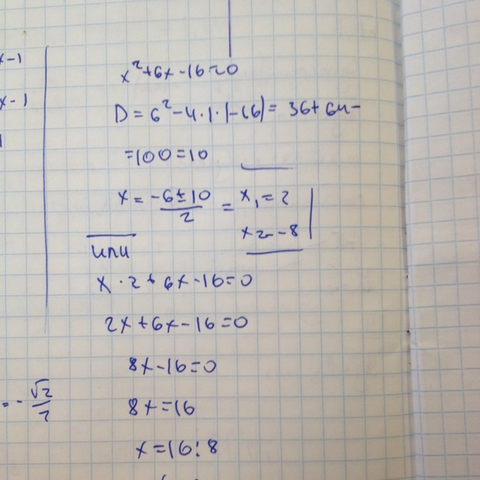 x-1
x-1
x²+6x-16=0
D=6²-4·1·(-16)=36+64-
=100=10
x=-6±10/2 = x₁=2
x₂=-8
или
x·2+6x-16=0
2x+6x-16=0
8x-16=0
8x=16
x=16:8
=-√2/2